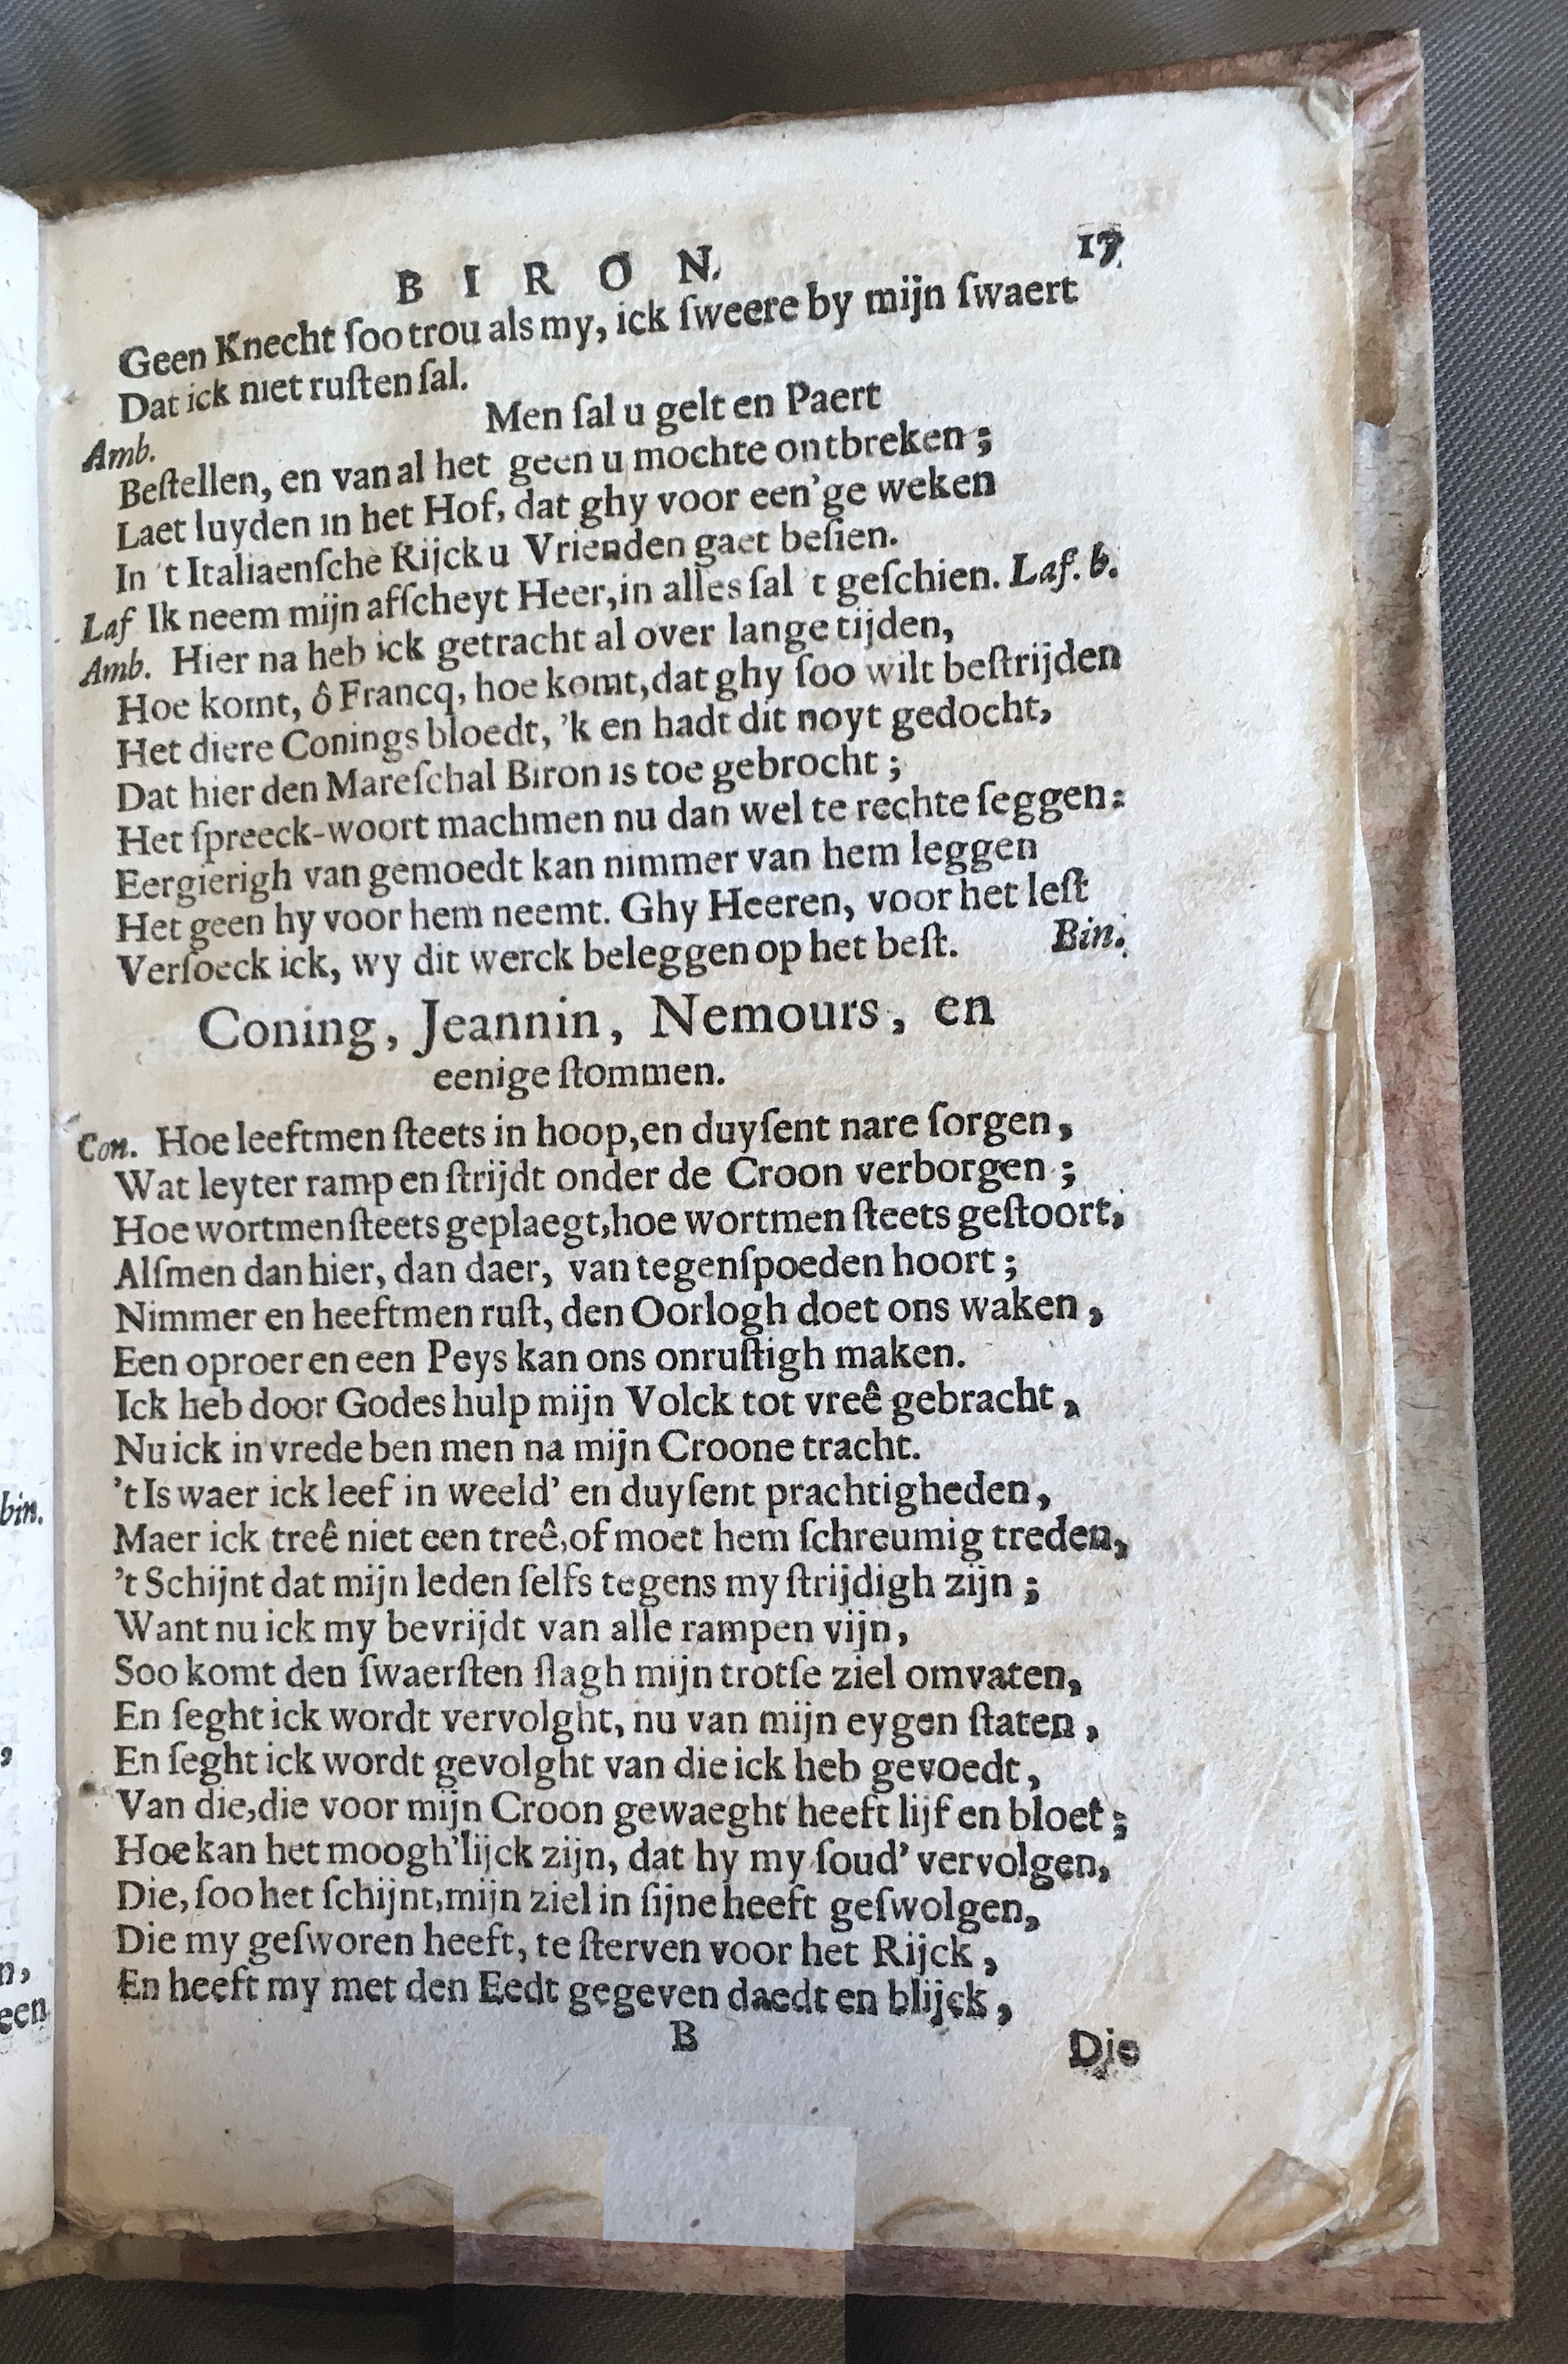 BIRON. 17
Geen Knecht ſoo trou als my, ick ſweere by mijn ſwaert
Dat ick niet ruſten ſal.
Amb. Men ſal u gelt en Paert
Beſtellen, en van al het geen u mochte ontbreken;
Laet luyden in het Hof, dat ghy voor een'ge weken
In 't Italiaenſche Rijck u Vrienden gaet beſien.
Laf Ik neem mijn affcheyt Heer, in alles ſal 't geſchien. Laf. b.
Amb. Hier na heb ick getracht al over lange tijden,
Hoe komt, ô Francq, hoe komt, dat ghy ſoo wilt beſtrijden
Het diere Conings bloedt, 'k en hadt dit noyt gedocht,
Dat hier den Mareſchal Biron is toe gebrocht;
Het ſpreeck-woort machmen nu dan wel te rechte ſeggen:
Eergierigh van gemoedt kan nimmer van hem leggen
Het geen hy voor hem neemt. Ghy Heeren, voor het leſt
Verſoeck ick, wy dit werck beleggen op het beſt. Bin.
Coning, Jeannin, Nemours, en
eenige ſtommen.
Con. Hoe leeftmen ſteets in hoop, en duyſent nare ſorgen,
Wat leyter ramp en ſtrijdt onder de Croon verborgen;
Hoe wortmen ſteets geplaegt, hoe wortmen ſteets geſtoort,
Alſmen dan hier, dan daer, van tegenſpoeden hoort;
Nimmer en heeftmen ruſt, den Oorlogh doet ons waken,
Een oproer en een Peys kan ons onruſtigh maken.
Ick heb door Godes hulp mijn Volck tot vreê gebracht,
Nu ick in vrede ben men na mijn Croone tracht.
't Is waer ick leef in weeld' en duyſent prachtigheden,
Maer ick treê niet een treê, of moet hem ſchreumig treden,
't Schijnt dat mijn leden ſelfs tegens my ſtrijdigh zijn;
Want nu ick my bevrijdt van alle rampen vijn,
Soo komt den ſwaerſten ſlagh mijn trotſe ziel omvaten,
En ſeght ick wordt vervolght, nu van mijn eygen ſtaten,
En ſeght ick wordt gevolght van die ick heb gevoedt,
Van die, die voor mijn Croon gewaeght heeft lijf en bloet;
Hoe kan het moogh'lijck zijn, dat hy my ſoud' vervolgen,
Die, ſoo het ſchijnt, mijn ziel in ſijne heeft geſwolgen,
Die my geſworen heeft, te ſterven voor het Rijck,
En heeft my met den Eedt gegeven daedt en blijck,
B Die
bin.
een